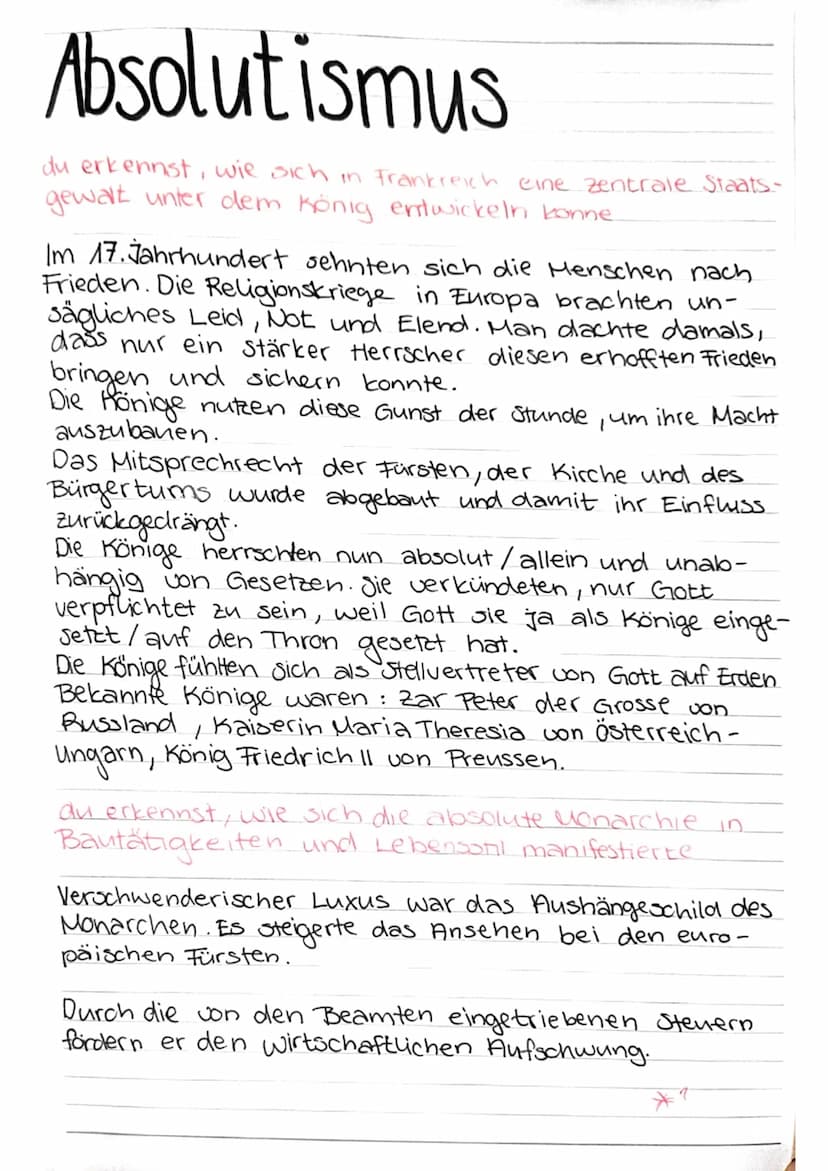 Absolutismus
du erkennst, wie sich in Frankreich eine zentrale Staats-
gewalt unter dem König entwickeln konne
Im 17. Jahrhundert sehnten sich die Menschen nach
Frieden. Die Religionskriege in Europa brachten un-
sägliches Leid, Not und Elend. Man dachte damals,
dass nur ein stärker Herrscher diesen erhofften Frieden
bringen und sichern konnte.
Die Könige nutzen diese Gunst der Stunde, um ihre Macht
auszubauen.
Das Mitsprechrecht der Fürsten, der Kirche und des
Bürgertums wurde abgebaut und damit ihr Einfluss
zurückgedrängt.
Die Könige herrschten nun absolut / allein und unab-
hängig von Gesetzen. Sie verkündeten, nur Gott
verpflichtet zu sein, weil Gott sie ja als Könige einge-
setzt / auf den Thron gesetzt hat.
Die Könige fühlten sich als Stellvertreter von Gott auf Erden
Bekannte Könige waren : Zar Peter der Grosse von
Russland, Kaiserin Maria Theresia von Österreich-
Ungarn, König Friedrich II von Preussen.
du erkennst, wie sich die absolute Monarchie in
Bautätigkeiten und Lebensstil manifestierte
Verschwenderischer Luxus war das Aushängeschild des
Monarchen. Es steigerte das Ansehen bei den euro-
päischen Fürsten.
Durch die von den Beamten eingetriebenen Steuern
fördern er den wirtschaftlichen Aufschwung.
*1